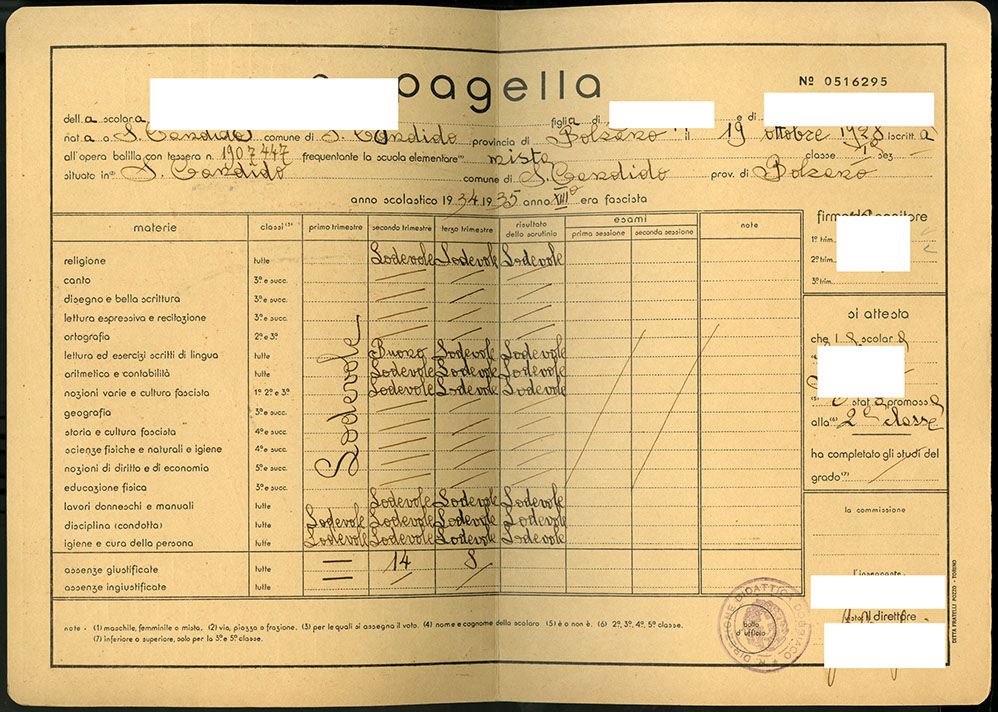 pagella
Nº 0516295
della scolara figlia di e di
nata a S. Candido comune di S. Candido provincia di Bolzano il 19 ottobre 1928 iscritta
all'opera balilla con tessera n. 1907447 frequentante la scuola elementare⁽¹⁾ mista classe I sez.
situata in⁽²⁾ S. Candido comune di S. Candido prov. di Bolzano
anno scolastico 1934-1935 anno XIII era fascista
materie classi ⁽³⁾ primo trimestre secondo trimestre terzo trimestre risultato dello scrutinio esami prima sessione seconda sessione note
religione tutte Lodevole Lodevole Lodevole
canto 3ª e succ.
disegno e bella scrittura 3ª e succ.
lettura espressiva e recitazione 3ª e succ.
ortografia 2ª e 3ª
Lodevole
lettura ed esercizi scritti di lingua tutte Buono Lodevole Lodevole
aritmetica e contabilità tutte Lodevole Lodevole Lodevole
nozioni varie e cultura fascista 1ª 2ª e 3ª Lodevole Lodevole Lodevole
geografia 3ª e succ.
storia e cultura fascista 4ª e succ.
scienze fisiche e naturali e igiene 4ª e succ.
nozioni di diritto e di economia 5ª e succ.
educazione fisica 3ª e succ.
lavori donneschi e manuali tutte Lodevole Lodevole Lodevole
disciplina (condotta) tutte Lodevole Lodevole Lodevole Lodevole
igiene e cura della persona tutte Lodevole Lodevole Lodevole Lodevole
assenze giustificate tutte = 14 8
assenze ingiustificate tutte =
note - (1) maschile, femminile o mista. (2) via, piazza o frazione. (3) per le quali si assegna il voto. (4) nome e cognome dello scolaro (5) è o non è. (6) 2ª, 3ª, 4ª, 5ª classe.
(7) inferiore o superiore, solo per la 3ª e 5ª classe.
firma
1º trim.
2º trim.
3º trim.
si attesta
che scolar
(5) stat promoss
alla⁽⁶⁾ 2ª classe
ha completato gli studi del
grado⁽⁷⁾
la commissione
l'insegnante
il direttore
bollo
d'ufficio
DIREZIONE DIDATTICA
DITTA FRATELLI POZZO - TORINO